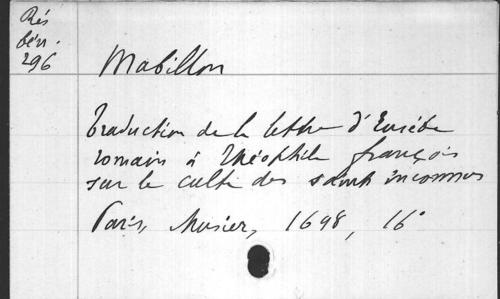 Rés
bén.
296
Mabillon
Traduction de la lettre d'Eusèbe
romain à Théophile françois
sur le culte des saints inconnus
Paris, Musier, 1698, 16°